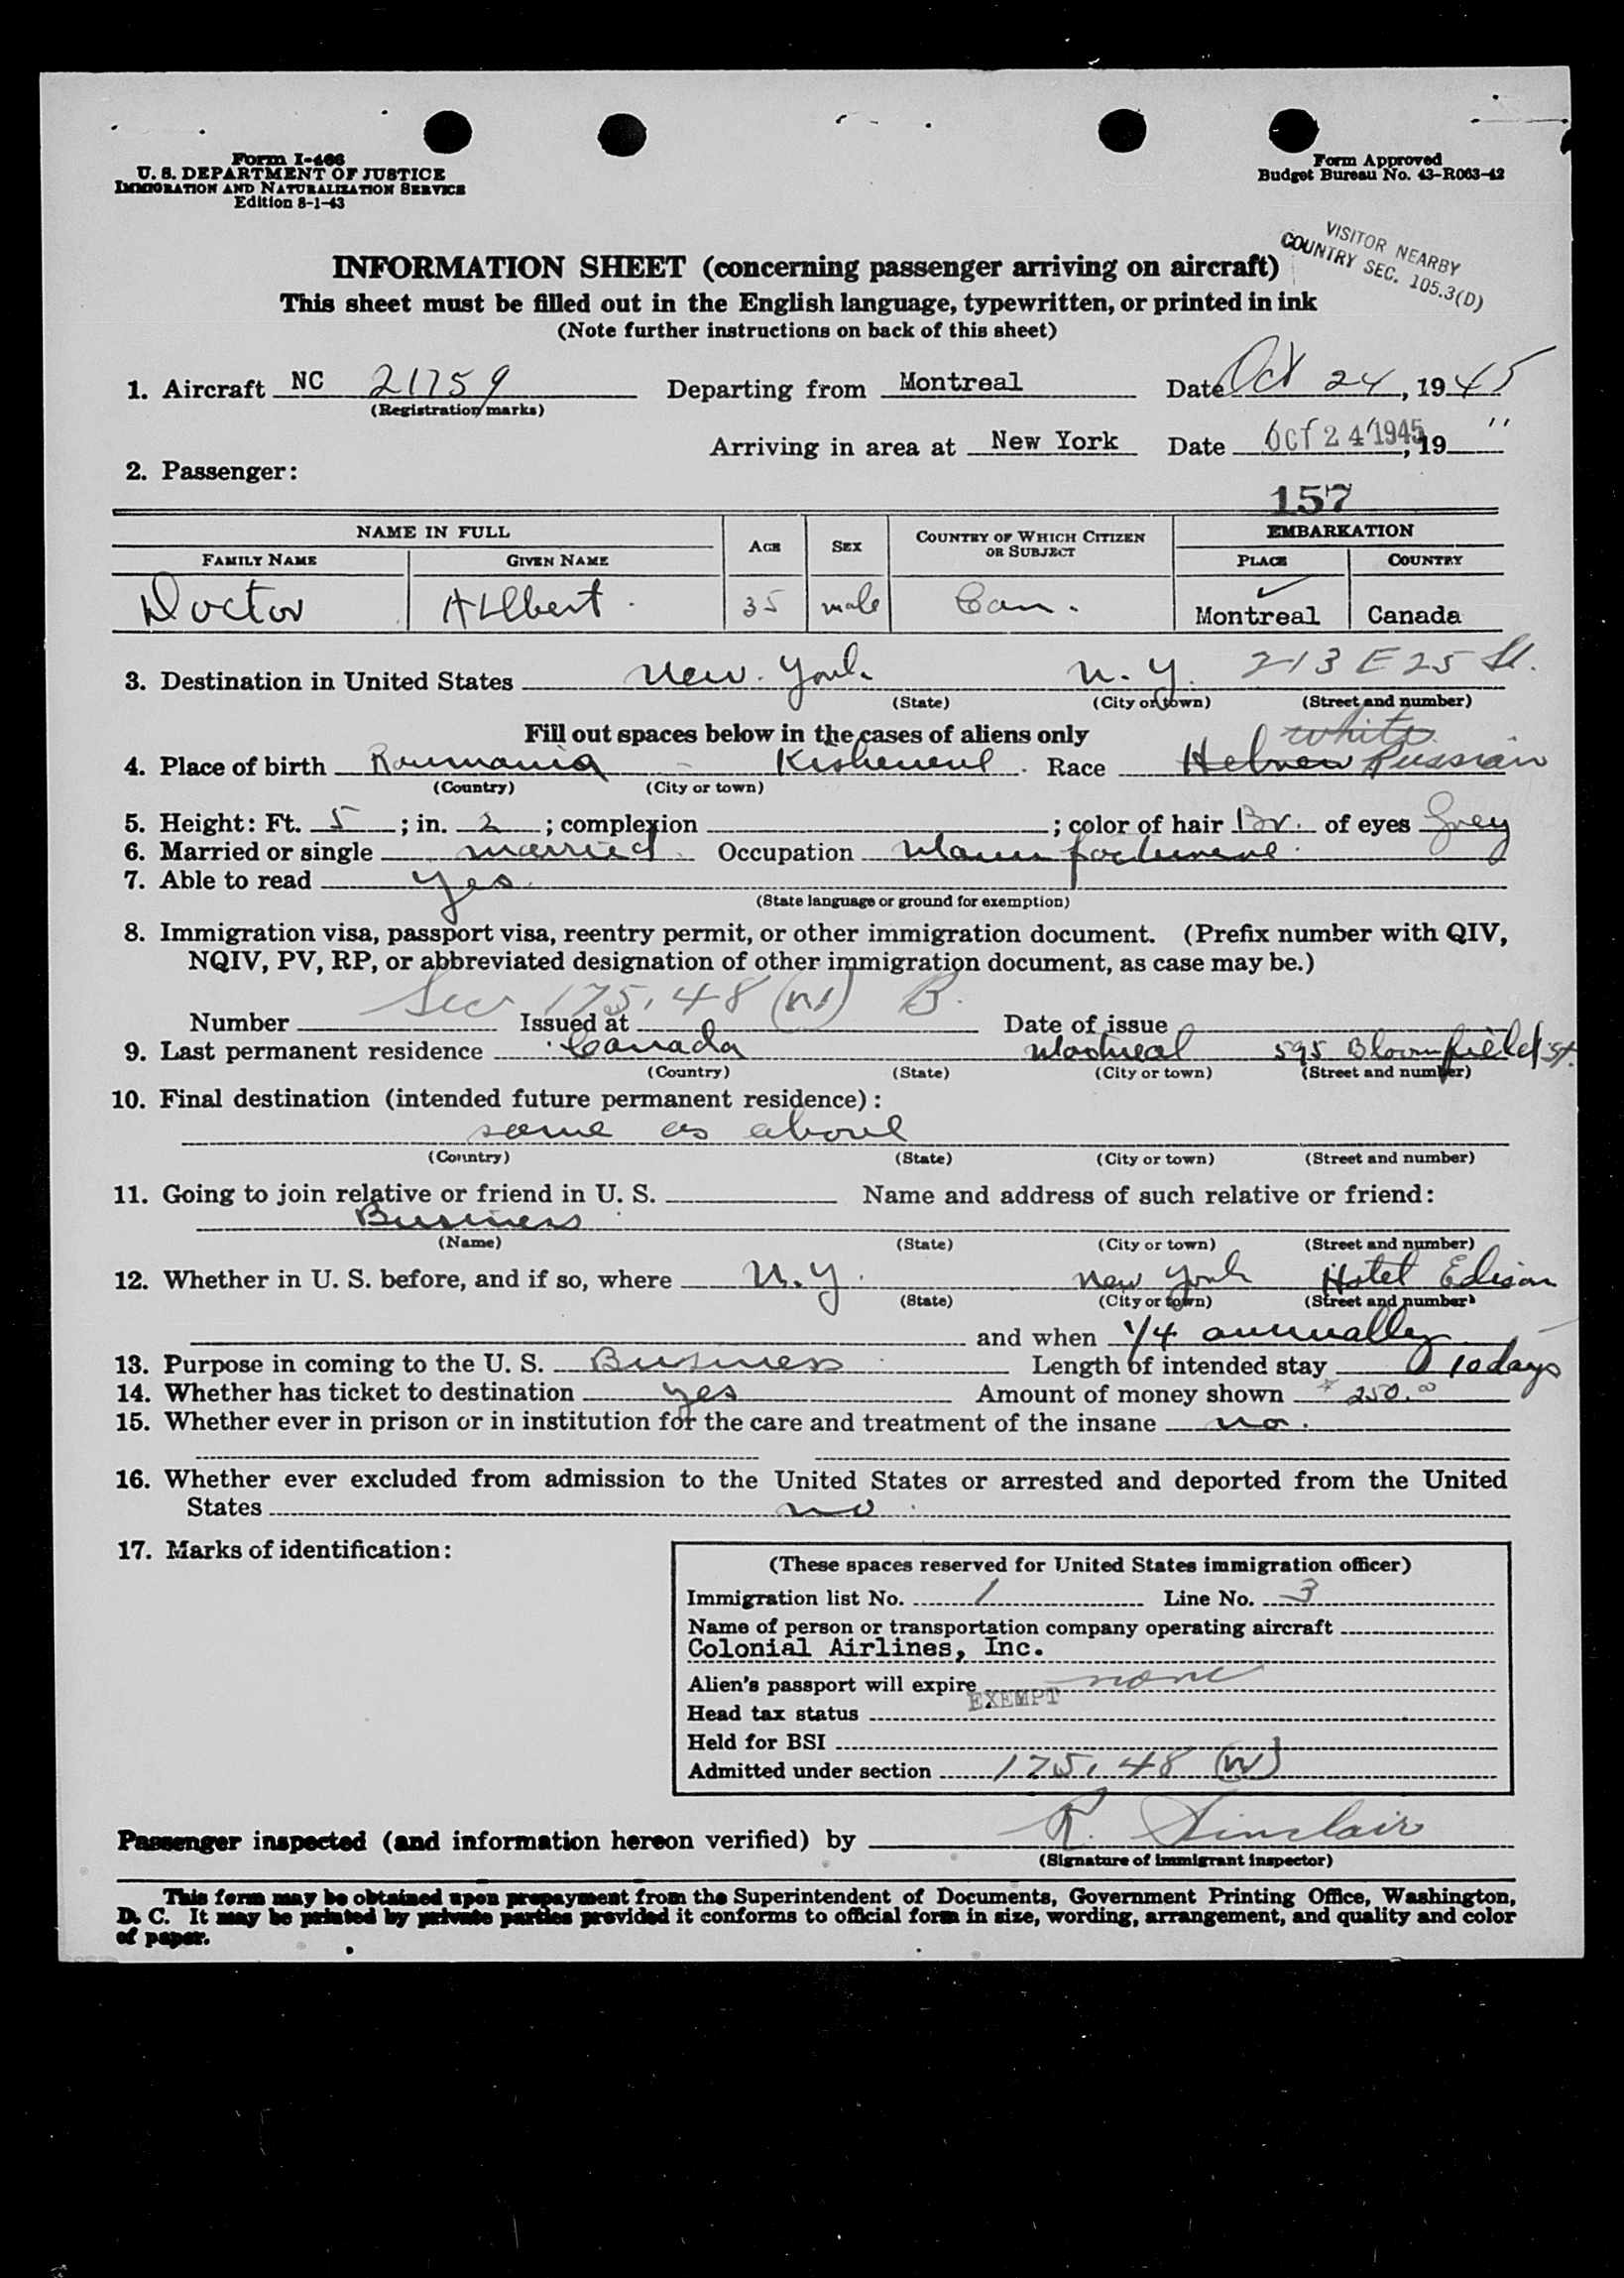 Form I-466
U. S. DEPARTMENT OF JUSTICE
IMMIGRATION AND NATURALIZATION SERVICE
Edition 8-1-43
Form Approved
Budget Bureau No. 43-R063-42
VISITOR NEARBY
COUNTRY SEC. 105.3(D)
INFORMATION SHEET (concerning passenger arriving on aircraft)
This sheet must be filled out in the English language, typewritten, or printed in ink
(Note further instructions on back of this sheet)
1. Aircraft NC 21759 Departing from Montreal Date Oct 24, 1945
(Registration marks)
Arriving in area at New York Date OCT 24 1945, 19 "
2. Passenger:
157
NAME IN FULL AGE SEX COUNTRY OF WHICH CITIZEN OR SUBJECT EMBARKATION
FAMILY NAME GIVEN NAME PLACE COUNTRY
Doctor Albert 35 male Can. Montreal Canada
3. Destination in United States New York N. Y. 213 E 25 St.
(State) (City or town) (Street and number)
Fill out spaces below in the cases of aliens only
white
4. Place of birth Roumania - Race Hebrew Russian
(Country) (City or town)
5. Height: Ft. 5; in. 2; complexion ; color of hair Br. of eyes Grey
6. Married or single married Occupation
7. Able to read Yes
(State language or ground for exemption)
8. Immigration visa, passport visa, reentry permit, or other immigration document. (Prefix number with QIV,
NQIV, PV, RP, or abbreviated designation of other immigration document, as case may be.)
Sec 175.48 B.
Number Issued at Date of issue
9. Last permanent residence Canada Montreal 595 Bloomfield St.
(Country) (State) (City or town) (Street and number)
10. Final destination (intended future permanent residence):
same as above
(Country) (State) (City or town) (Street and number)
11. Going to join relative or friend in U. S. Name and address of such relative or friend:
Business
(Name) (State) (City or town) (Street and number)
12. Whether in U. S. before, and if so, where N.Y. New York Hotel Edison
(State) (City or town) (Street and number)
and when 1/4 annually
13. Purpose in coming to the U. S. Business Length of intended stay 10 days
14. Whether has ticket to destination yes Amount of money shown 250.00
15. Whether ever in prison or in institution for the care and treatment of the insane no.
16. Whether ever excluded from admission to the United States or arrested and deported from the United
States no
17. Marks of identification:
(These spaces reserved for United States immigration officer)
Immigration list No. 1 Line No. 3
Name of person or transportation company operating aircraft
Colonial Airlines, Inc.
Alien's passport will expire none
EXEMPT
Head tax status
Held for BSI
Admitted under section 175.48
Passenger inspected (and information hereon verified) by R. Sinclair
(Signature of immigrant inspector)
This form may be obtained upon prepayment from the Superintendent of Documents, Government Printing Office, Washington,
D. C. It may be printed by private parties provided it conforms to official form in size, wording, arrangement, and quality and color
of paper.